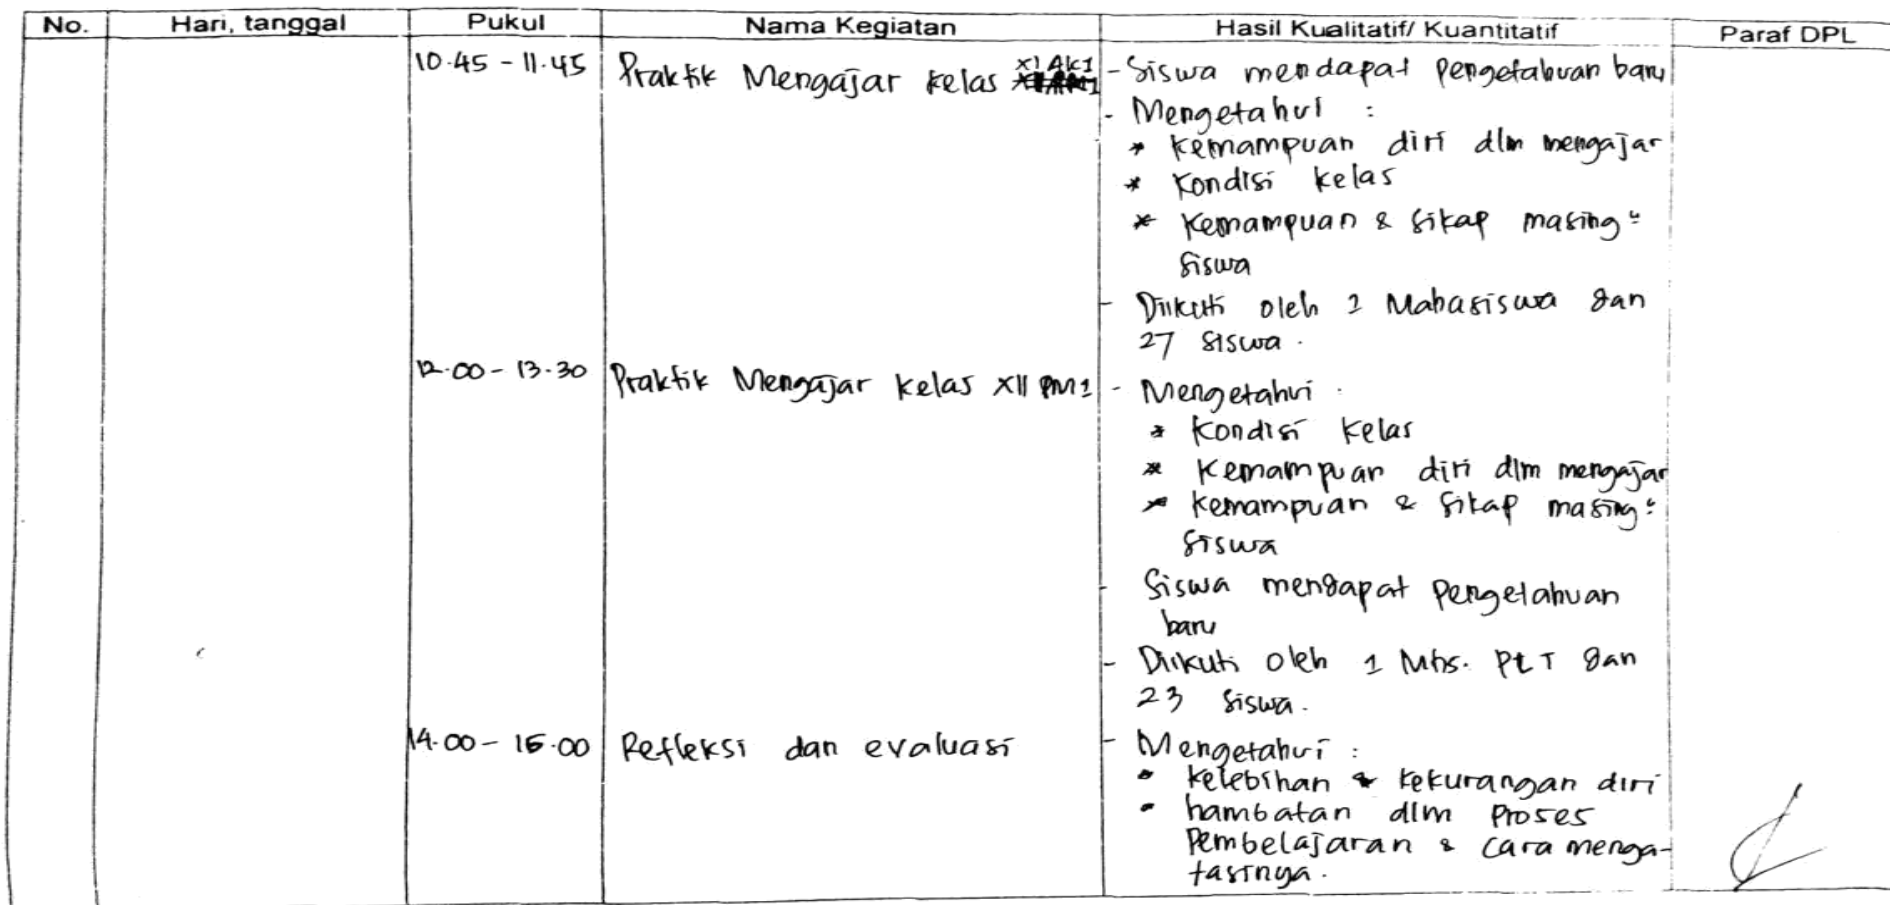 No. Hari, tanggal Pukul Nama Kegiatan Hasil Kualitatif/ Kuantitatif Paraf DPL
10.45 - 11.45 Praktik Mengajar kelas XI AK1 - Siswa mendapat pengetahuan baru
- Mengetahui :
* Kemampuan diri dlm mengajar
* Kondisi kelas
* Kemampuan & sikap masing"
siswa
- Diikuti oleh 1 Mahasiswa dan
27 siswa.
12.00 - 13.30 Praktik Mengajar kelas XII PM1 - Mengetahui :
* Kondisi kelas
* Kemampuan diri dlm mengajar
* kemampuan & sikap masing"
siswa
- Siswa mendapat pengetahuan
baru
- Diikuti oleh 1 Mhs. PLT dan
23 siswa.
14.00 - 15.00 Refleksi dan evaluasi - Mengetahui :
* kelebihan & kekurangan diri
* hambatan dlm proses
pembelajaran & cara menga-
tasinya.